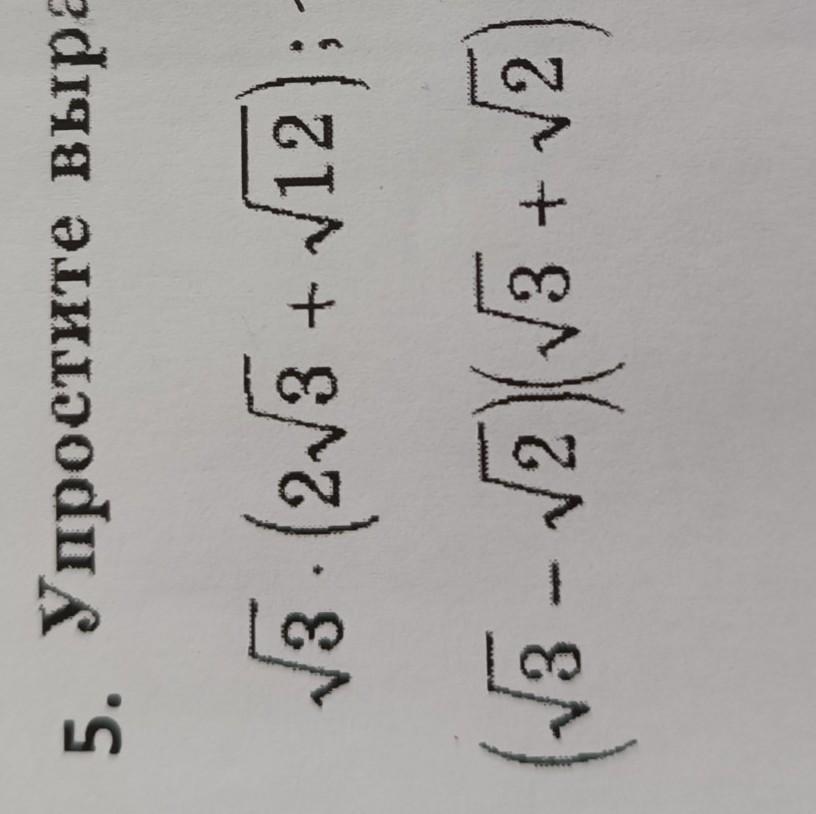 5. Упростите выра
√3 · (2√3 + √12);
(√3 − √2)(√3 + √2)